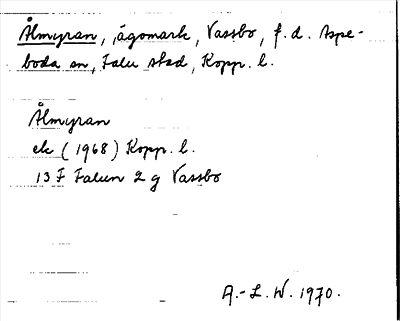 Ålmyran, ägomark, Vassbo, f.d. Aspe-
boda sn, Falu stad, Kopp. l.
Ålmyran
ek (1968) Kopp. l.
13 F Falun 2 g Vassbo
A.-L. W. 1970.